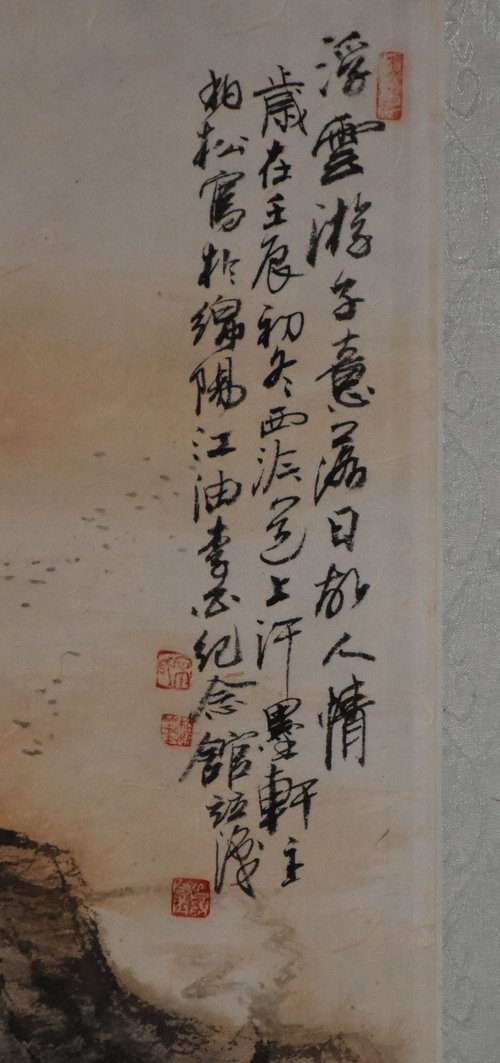 浮雲游子意落日故人情
歲在壬辰初冬西 道上汗墨軒主
柏松寫於綿陽江油李白紀念館